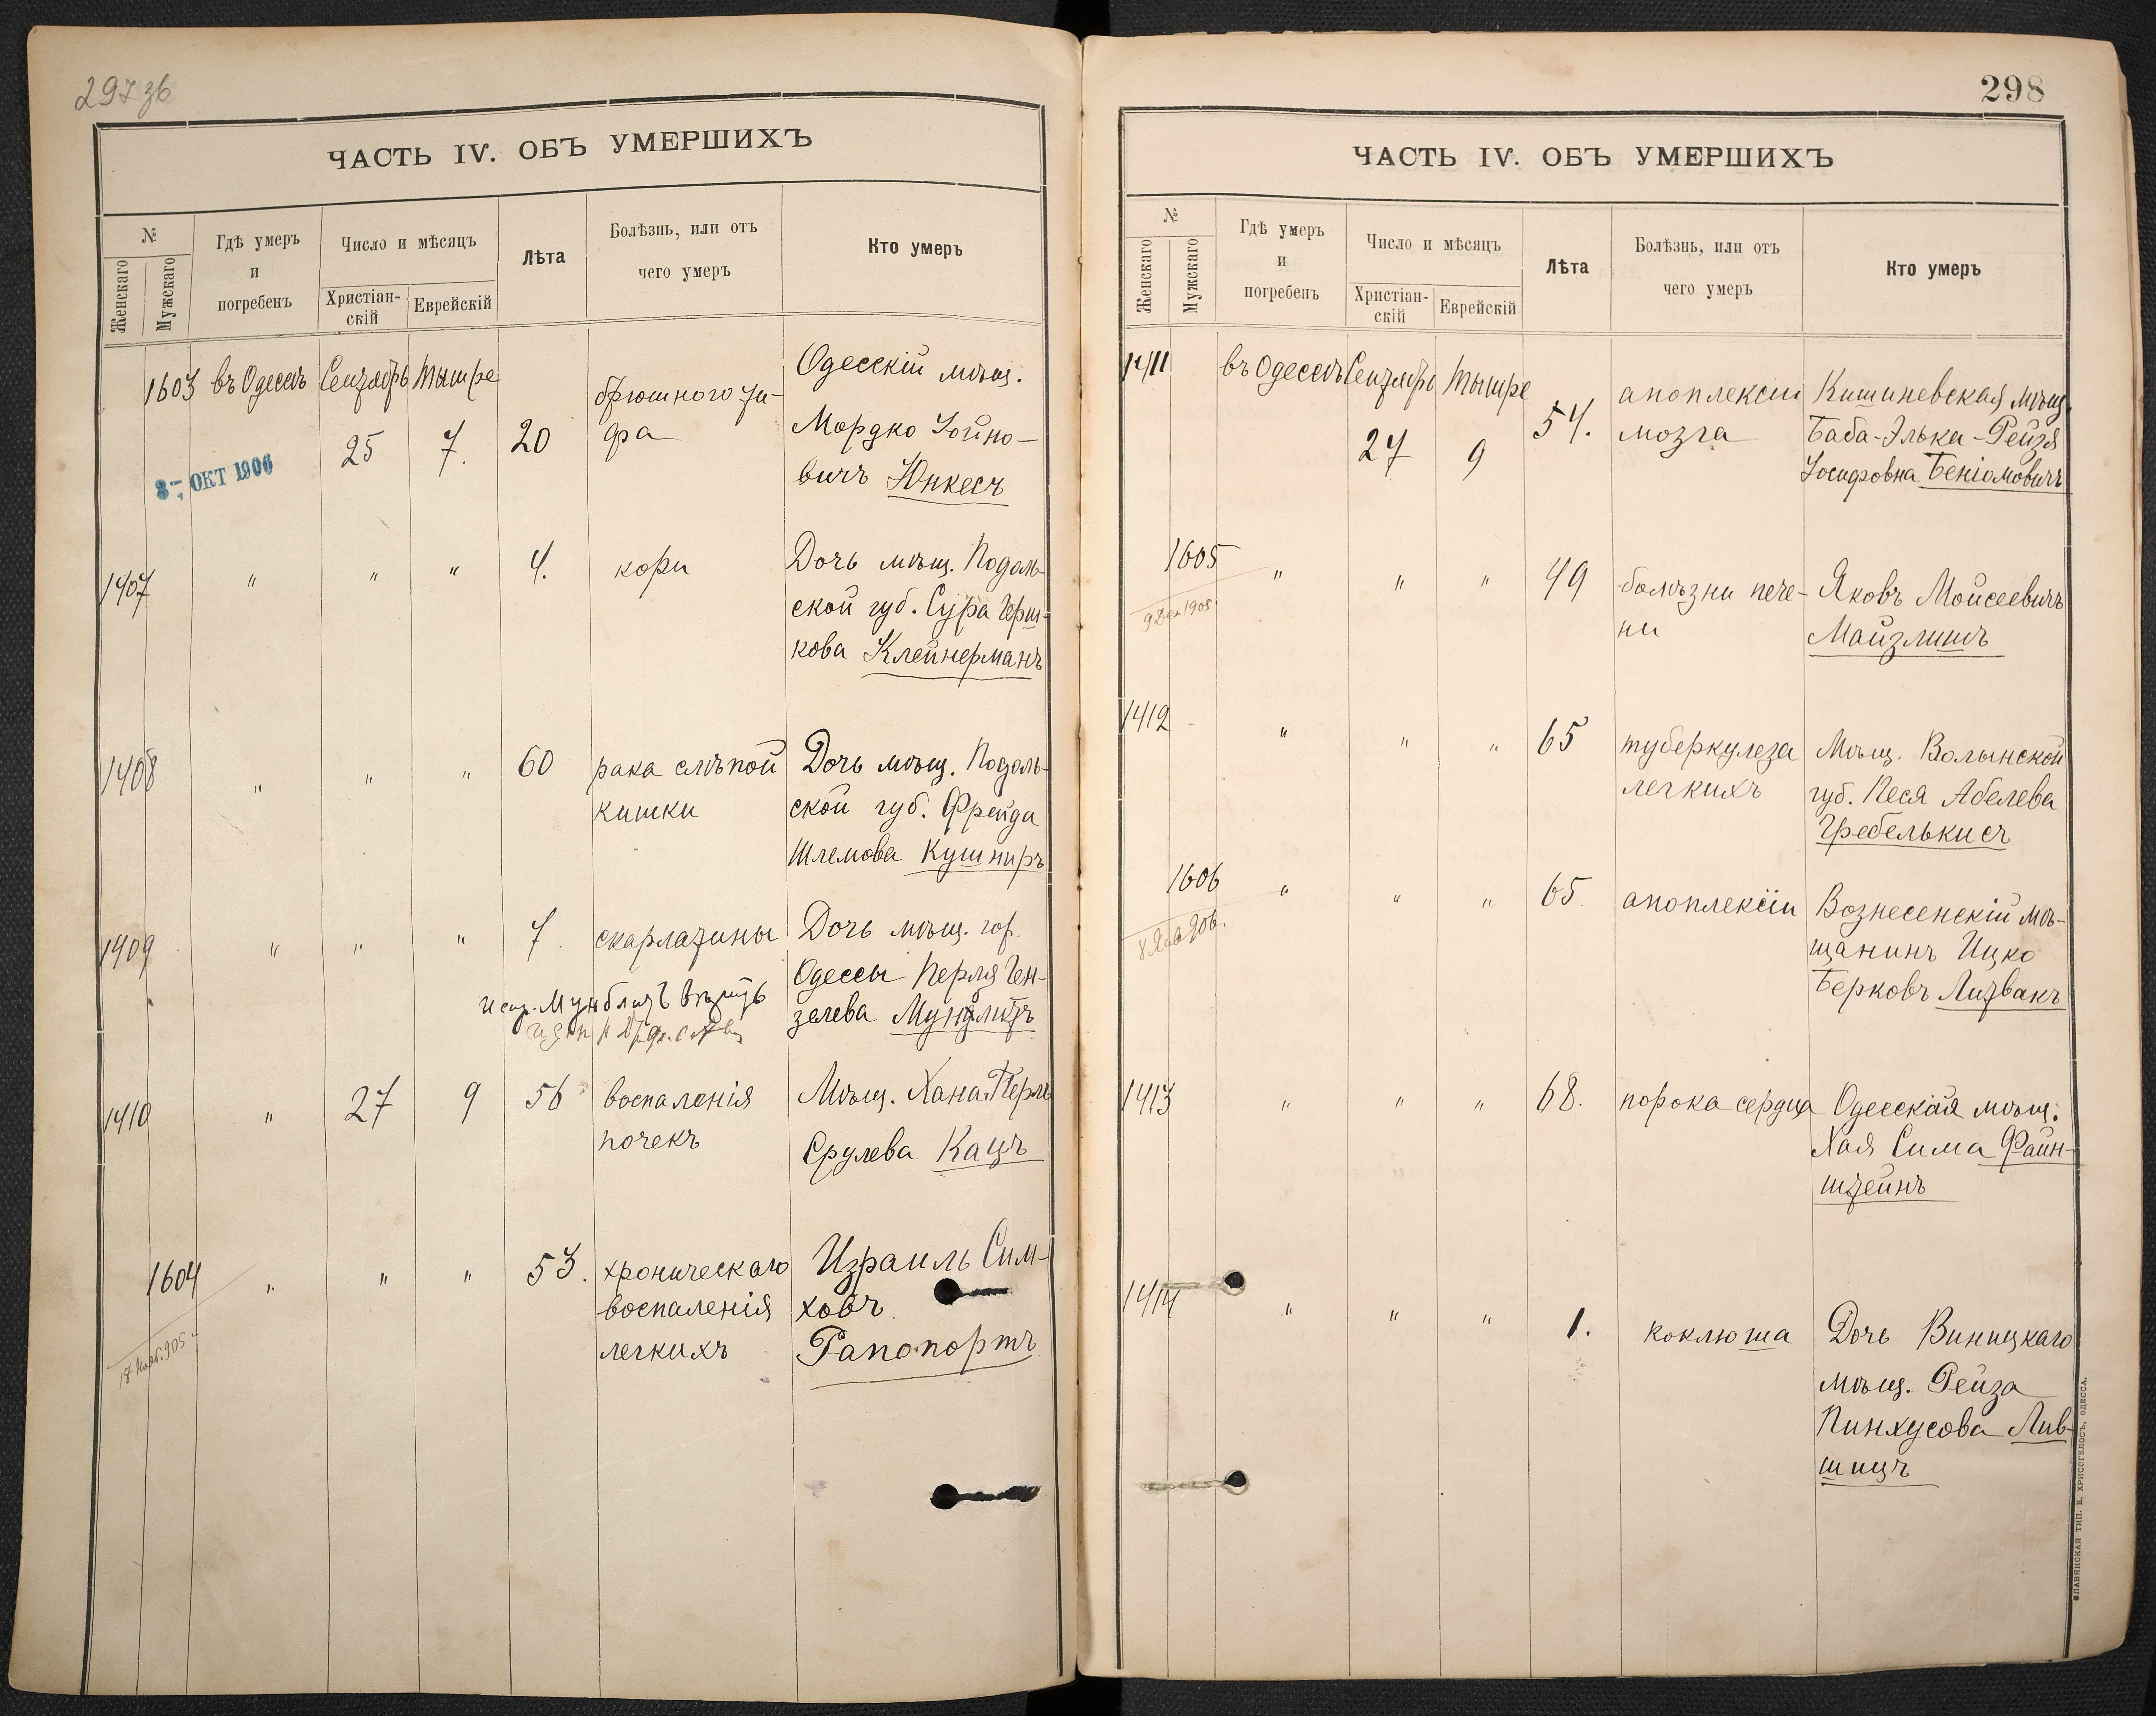 297 зв
ЧАСТЬ IV. ОБЪ УМЕРШИХЪ
№
Женскаго
Мужскаго
Гдѣ умеръ
и
погребенъ
Число и мѣсяцъ
Христіан-
скій
Еврейскій
Лѣта
Болѣзнь, или отъ
чего умеръ
Кто умеръ
1603 въ Одессѣ Сентябрь Тышре
25 7. 20
брюшного ти-
фа
Одесскій мѣщ.
Мордко Іойно-
вичъ Юнкесъ
3- ОКТ 1906
1407 " " " 4. кори
Дочь мѣщ. Подоль-
ской губ. Сура Герш-
кова Клейнерманъ
1408 " " " 60
рака слѣпой
кишки
Дочь мѣщ. Подоль-
ской губ. Фрейда
Шлемова Кушниръ
1409 " " " 7. скарлатины
Дочь мѣщ. гор.
Одессы Перля Ген-
зелева
1410 " 27 9 56
воспаленія
почекъ
Мѣщ. Хана Перля
Срулева Кацъ
1604 " " " 53.
хроническаго
воспаленія
легкихъ
Израиль Сим-
ховъ
Рапопортъ
18 Нояб. 905
298
ЧАСТЬ IV. ОБЪ УМЕРШИХЪ
№
Женскаго
Мужскаго
Гдѣ умеръ
и
погребенъ
Число и мѣсяцъ
Христіан-
скій
Еврейскій
Лѣта
Болѣзнь, или отъ
чего умеръ
Кто умеръ
1411 въ Одессѣ Сентябрь Тышре
27 9 54.
апоплексіи
мозга
Кишиневская мѣщ.
Баба-Элька-Рейзя
Іосифовна Беніамовичъ
1605 " " " 49
9 Дек 1905
болѣзни пече-
ни
Яковъ Мойсеевичъ
Майзлишъ
1412 " " " 65
туберкулеза
легкихъ
Мѣщ. Волынской
губ. Песя Абелева
Гребелькисъ
1606 " " " 65. апоплексіи
8 Янв 906.
Вознесенскій мѣ-
щанинъ Ицко
Берковъ Литвакъ
1413 " " " 68. порока сердца
Одесская мѣщ.
Хая Сима Файн-
штейнъ
1414 " " " 1. коклюша
Дочь Виницкаго
мѣщ. Рейза
Пинхусова Лив-
шицъ
СЛАВЯНСКАЯ ТИП. Е. ХРИСОГЕЛОСЪ, ОДЕССА.